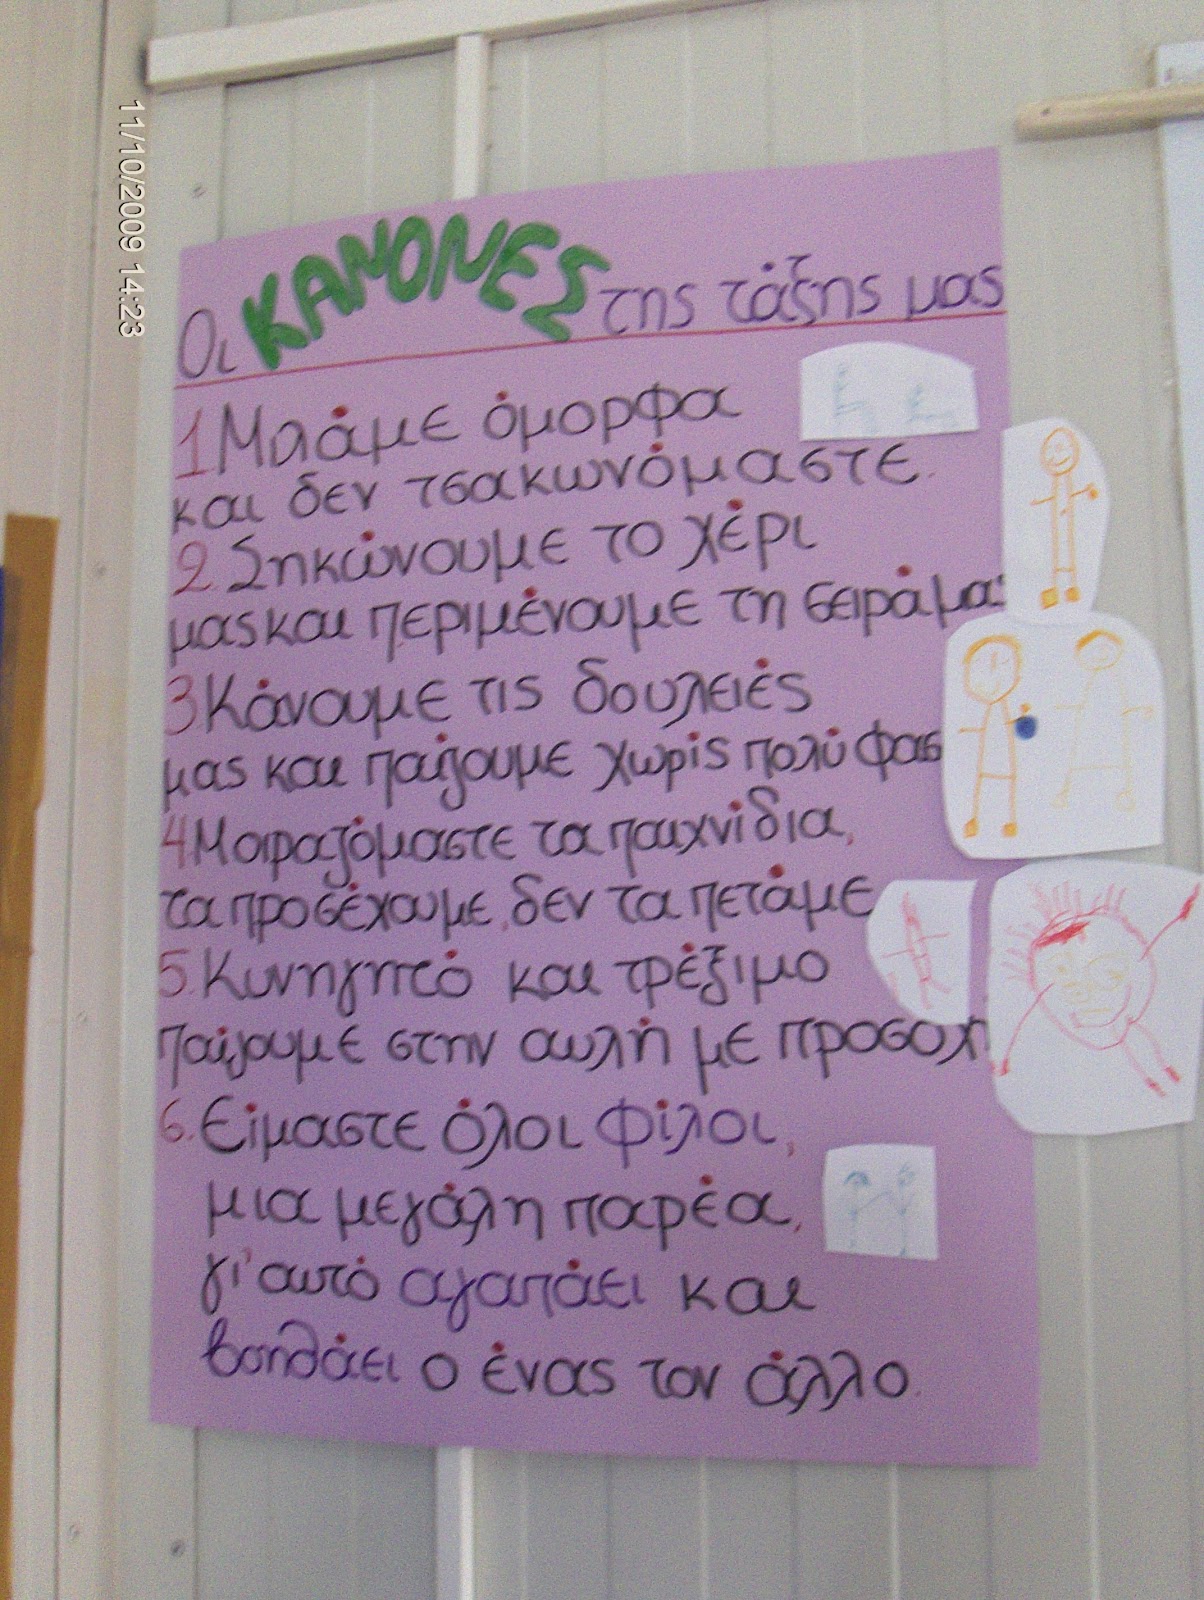 11/10/2009 14:23
Οι ΚΑΝΟΝΕΣ της τάξης μας
1 Μιλάμε όμορφα
και δεν τσακωνόμαστε.
2. Σηκώνουμε το χέρι
μας και περιμένουμε τη σειρά μας
3. Κάνουμε τις δουλειές
μας και παίζουμε χωρίς πολύ φασ
4 Μοιραζόμαστε τα παιχνίδια,
τα προσέχουμε, δεν τα πετάμε
5. Κυνηγητό και τρέξιμο
παίζουμε στην αυλή με προσοχή
6. Είμαστε όλοι φίλοι,
μια μεγάλη παρέα,
γι' αυτό αγαπάει και
βοηθάει ο ένας τον άλλο.